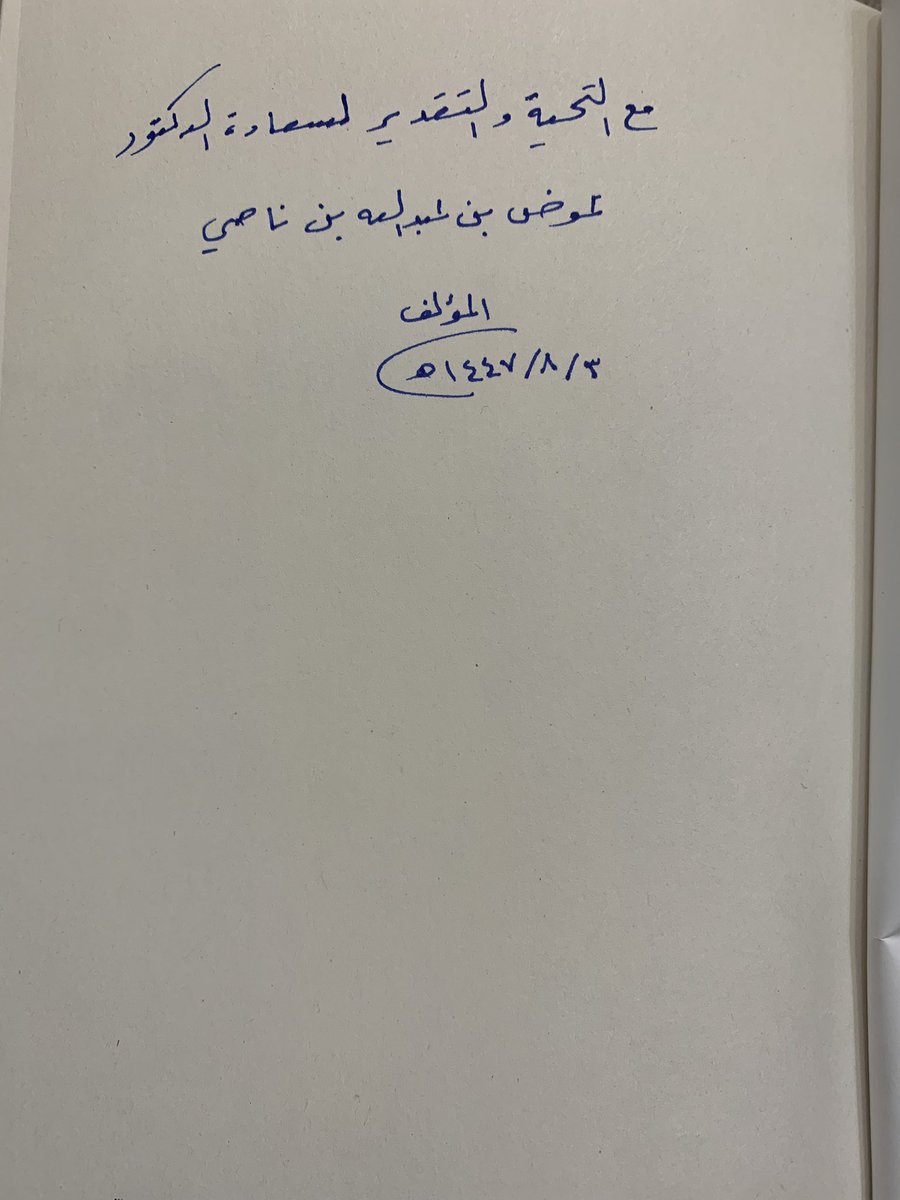 مع التحية والتقدير لسعادة الدكتور
عوض بن عبدالله بن ناحي
المؤلف
٣/٨/١٤٤٧هـ